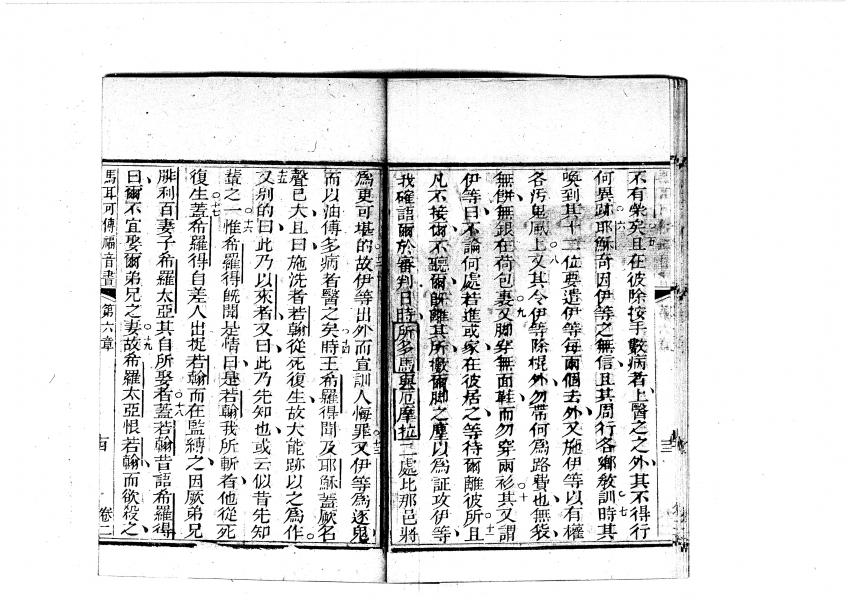 不有榮矣且在彼除按手數病者上醫之之外其不得行
何異跡耶穌奇因伊等之無信且其周行各鄉教訓時其
喚到其十二位要遣伊等每兩個去外又施伊等以有權
各汚鬼風上又其令伊等除棍外勿帶何為路費也無袋
無餅無銀在荷包裏又脚穿無面鞋而勿穿兩衫其又謂
伊等曰不論何處若進或家在彼居之等待爾離彼所且
凡不接爾不聽爾旣離其所擻爾脚之塵以為証攻伊等
我確語爾於審判日時所多馬與厄摩拉二處比那邑將
為更可堪的故伊等出外而宣訓人悔罪又伊等為逐鬼
而以油傅多病者醫之矣時王希羅得聞及耶穌蓋厥名
聲已大且曰施洗者若翰從死復生故大能跡以之為作
又别的曰此乃以來者又曰此乃先知也或云似昔先知
輩之一惟希羅得旣聞是情曰是若翰我所斬者他從死
復生蓋希羅得自差人出捉若翰而在監縛之因厥弟兄
腓利百妻子希羅太亞其自所娶者蓋若翰昔語希羅得
曰爾不宜娶爾弟兄之妻故希羅太亞恨若翰而欲殺之
馬耳可傳福音書 第六章 卷二